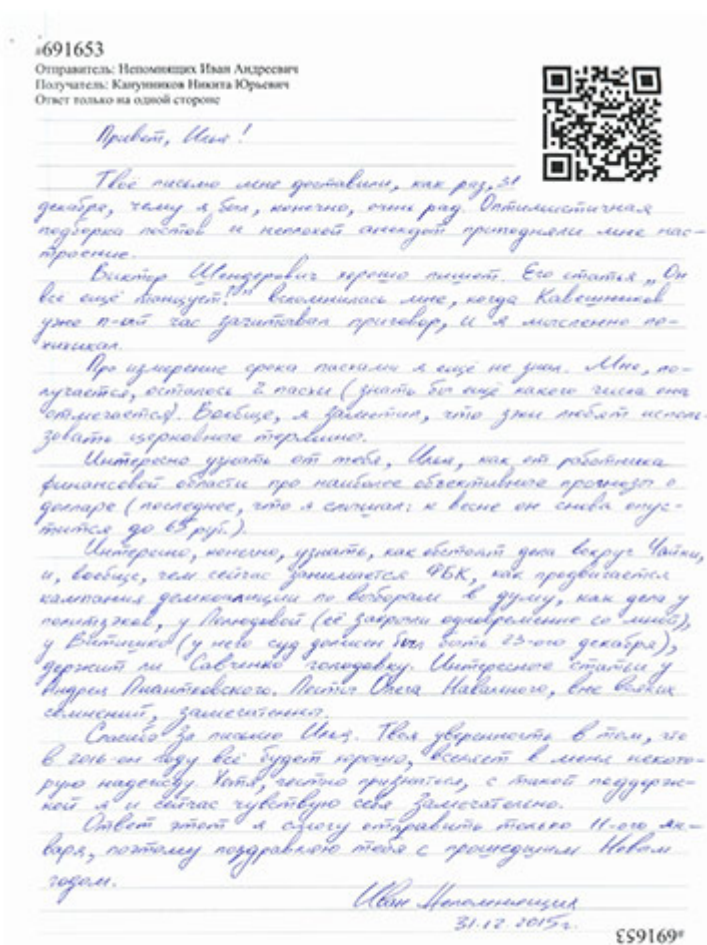 #691653
Отправитель: Непомнящих Иван Андреевич
Получатель: Канунников Никита Юрьевич
Ответ только на одной стороне
Привет, Илья!
Твоё письмо мне доставили, как раз, 31
декабря, чему я был, конечно, очень рад. Оптимистичная
подборка постов и неплохой анекдот приподняли мне нас-
троение.
Виктор Шендерович хорошо пишет. Его статья „Он
всё ещё танцует!" вспомнилась мне, когда Кавешников
уже n-ый час зачитывал приговор, и я мысленно по-
хихикал.
Про измерение срока пасхами я ещё не знал. Мне, по-
лучается, осталось 2 пасхи (знать бы ещё какого числа она
отмечается). Вообще, я заметил, что зэки любят исполь-
зовать церковные термины.
Интересно узнать от тебя, Илья, как от работника
финансовой области про наиболее объективные прогнозы о
долларе (последнее, что я слышал: к весне он снова опус-
тится до 65 руб.).
Интересно, конечно, узнать, как обстоят дела вокруг Чайки,
и, вообще, чем сейчас занимаются ФБК, как продвигается
кампания демкоалиции по выборам в думу, как дела у
политзэков, у Полюдовой (её закрыли одновременно со мной),
у Витишко (у него суд должен был быть 23-ого декабря),
держит ли Савченко голодовку. Интересные статьи у
Андрея Пионтковского. Посты Олега Навального, вне всяких
сомнений, замечательны.
Спасибо за письмо Илья. Твоя уверенность в том, что
в 2016-ом году всё будет хорошо, вселяет в меня некото-
рую надежду. Хотя, честно признаться, с такой поддерж-
кой я и сейчас чувствую себя замечательно.
Ответ этот я смогу отправить только 11-ого ян-
варя, поэтому поздравляю тебя с прошедшим Новым
годом.
Иван Непомнящих
31.12.2015г.
#691653